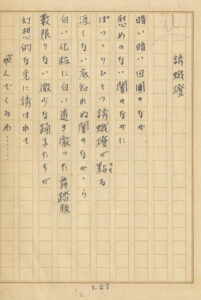 誘蛾燈
暗い暗い田圃のなか
慰めのない闇のなかに
ぽつりひとつ誘蛾燈が點る
涯しない底知れぬ闇のなかから
白い化粧に白い透き徹った舞踏服
數限りない微少な踊子たちが
幻想的な光に誘はれて
飛んでくるわ……
127